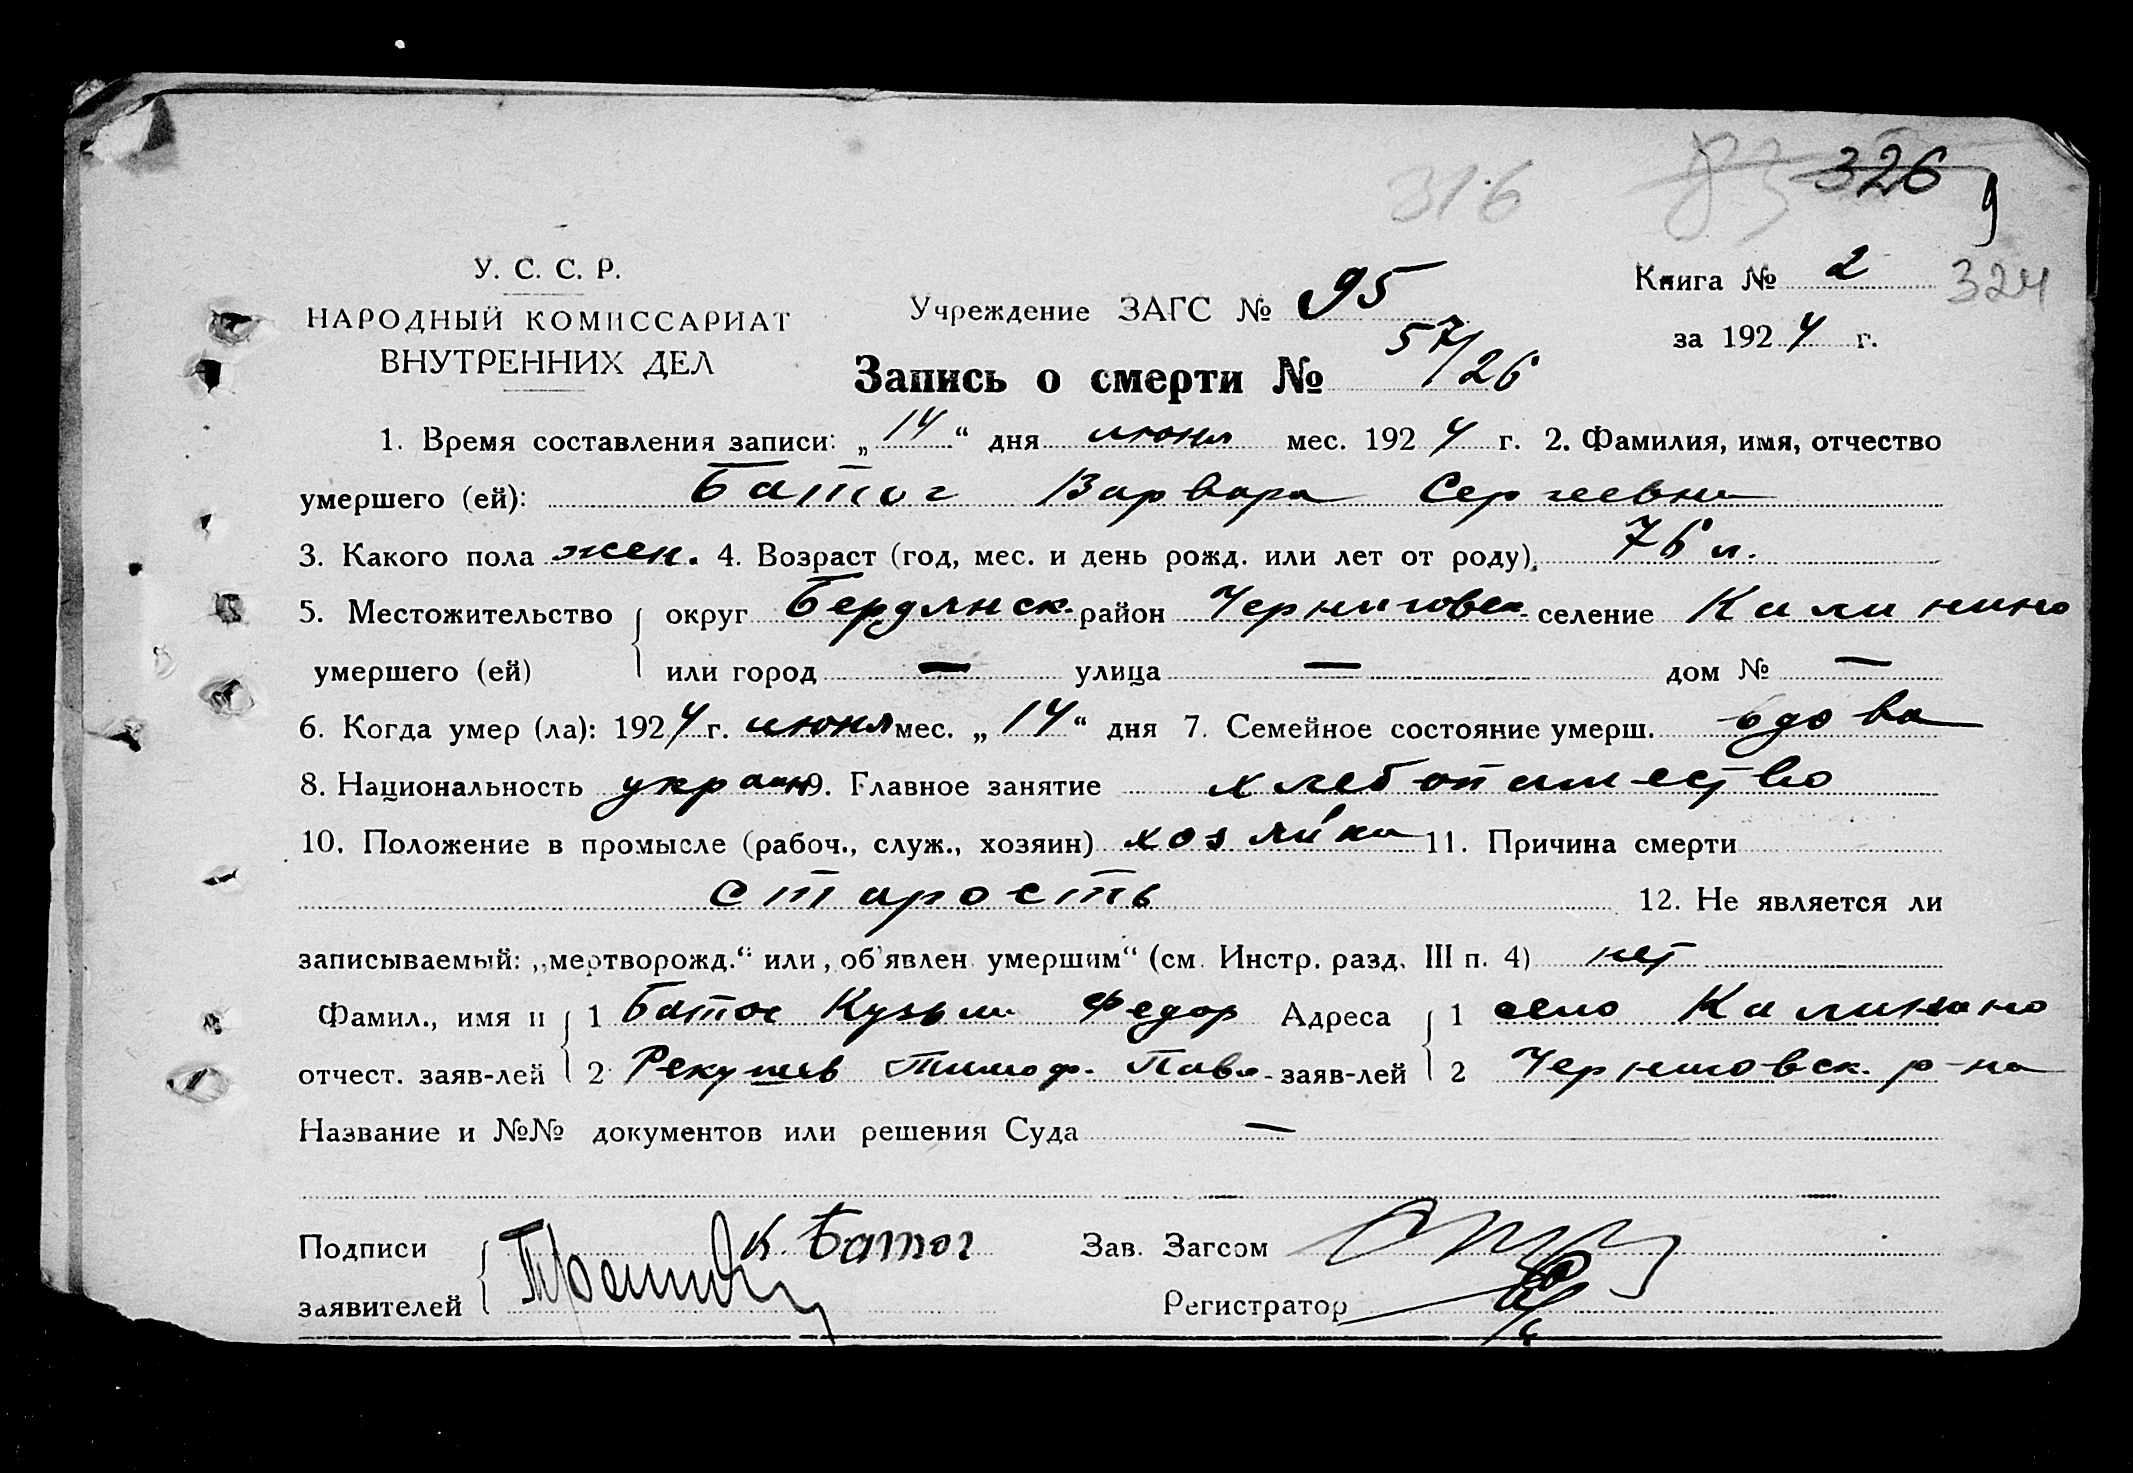 326
316
У. С. С. Р.
НАРОДНЫЙ КОМИССАРИАТ
ВНУТРЕННИХ ДЕЛ
Учреждение ЗАГС № 95
Книга № 2 324
за 1924 г.
Запись о смерти № 57/26
1. Время составления записи: „14“ дня июня мес. 1924 г. 2. Фамилия, имя, отчество
умершего (ей): Батог Варвара Сергеевна
3. Какого пола жен. 4. Возраст (год, мес. и день рожд. или лет от роду) 76 л.
5. Местожительство округ Бердянск. район Черниговск. селение Калинино
умершего (ей) или город — улица — дом № —
6. Когда умер (ла): 1924 г. июня мес. „14“ дня 7. Семейное состояние умерш. вдова
8. Национальность украин 9. Главное занятие хлебопашество
10. Положение в промысле (рабоч., служ., хозяин) хозяйка 11. Причина смерти
старость 12. Не является ли
записываемый: „мертворожд.“ или „об'явлен умершим“ (см. Инстр. разд. III п. 4) нет
Фамил., имя и 1 Батог Кузьма Федор Адреса 1 село Калинино
отчест. заяв-лей 2 Тимоф. Павл. заяв-лей 2 Черниговск. р-на
Название и №№ документов или решения Суда —
Подписи К. Батог Зав. Загсом
заявителей Регистратор